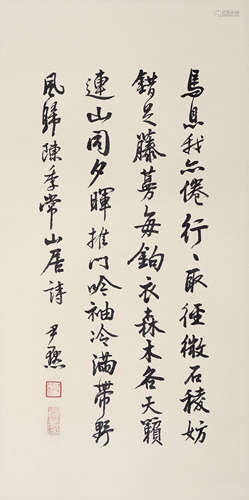 馬息我亦倦行〻取徑微石稜妨
錯足藤蔓每鉤衣森木各天籟
連山同夕暉推門吟袖冷滿帶野
風歸陳季常山居詩 尹默